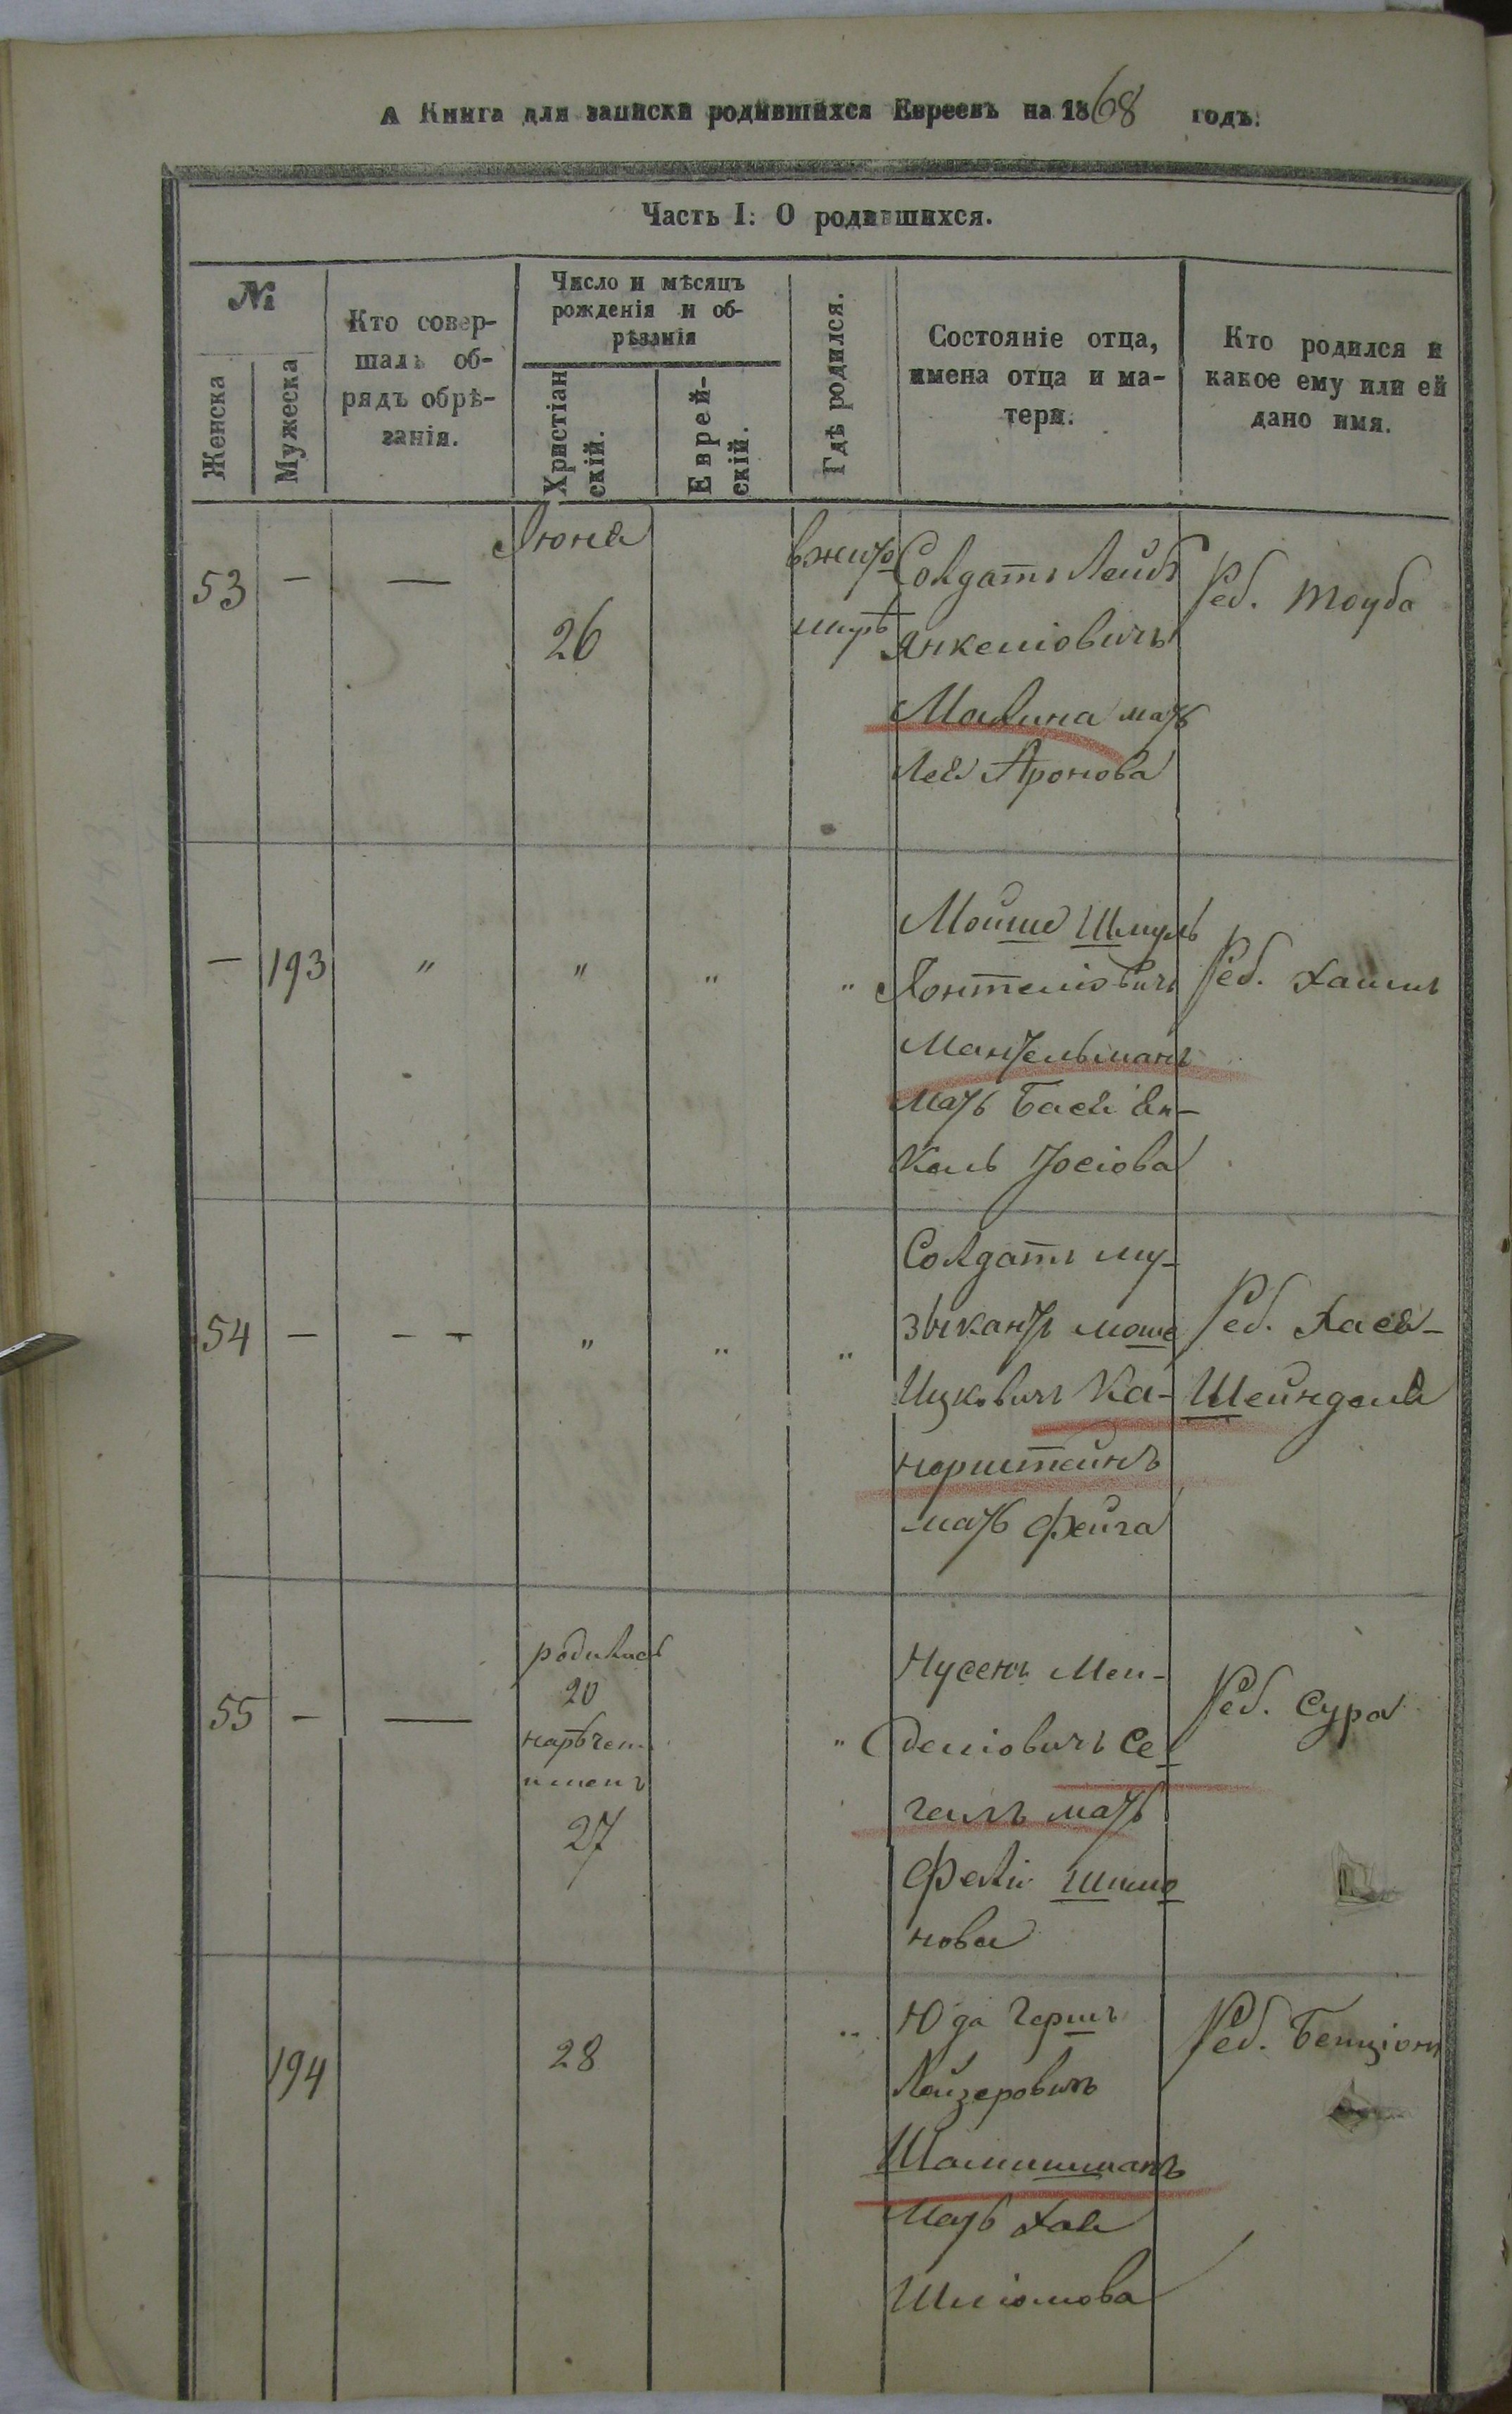 А Книга для записки родившихся Евреевъ на 1868 годъ.
Часть I: О родившихся.
№
Женска
Мужеска
Кто совер-
шалъ об-
рядъ обрѣ-
занія.
Число и мѣсяцъ
рожденія и об-
рѣзанія
Христіан
скій.
Еврей-
скій.
Гдѣ родился.
Состояніе отца,
имена отца и ма-
тери.
Кто родился и
какое ему или ей
дано имя.
53 — — Июня
26
вжито
мирѣ
Солдатъ Лейбъ
Янкеліовичъ
Малина мать
Лея Аронова
Реб. Тоуба
— 193 " " " "
Мойше Шмуль
Іонтеліовичъ
Мантельманъ
мать Бася Ен-
Кель Іосіова
Реб. Хаимъ
54 — - - " " "
Солдатъ му-
зыкантъ Моше
Ицковичъ Ка-
норштейнъ
мать Фейга
Реб. Хася-
Шейнделя
55 — —
родилась
20
нарѣчен.
имемъ
27
"
Нусенъ Мен-
деліовичъ Се-
галъ мать
Фейги Шимо
нова
Реб. Сура
194 28 "
Юда Гершъ
Лейзеровичъ
мать Хая
Шліомова
Реб. Бенціонъ